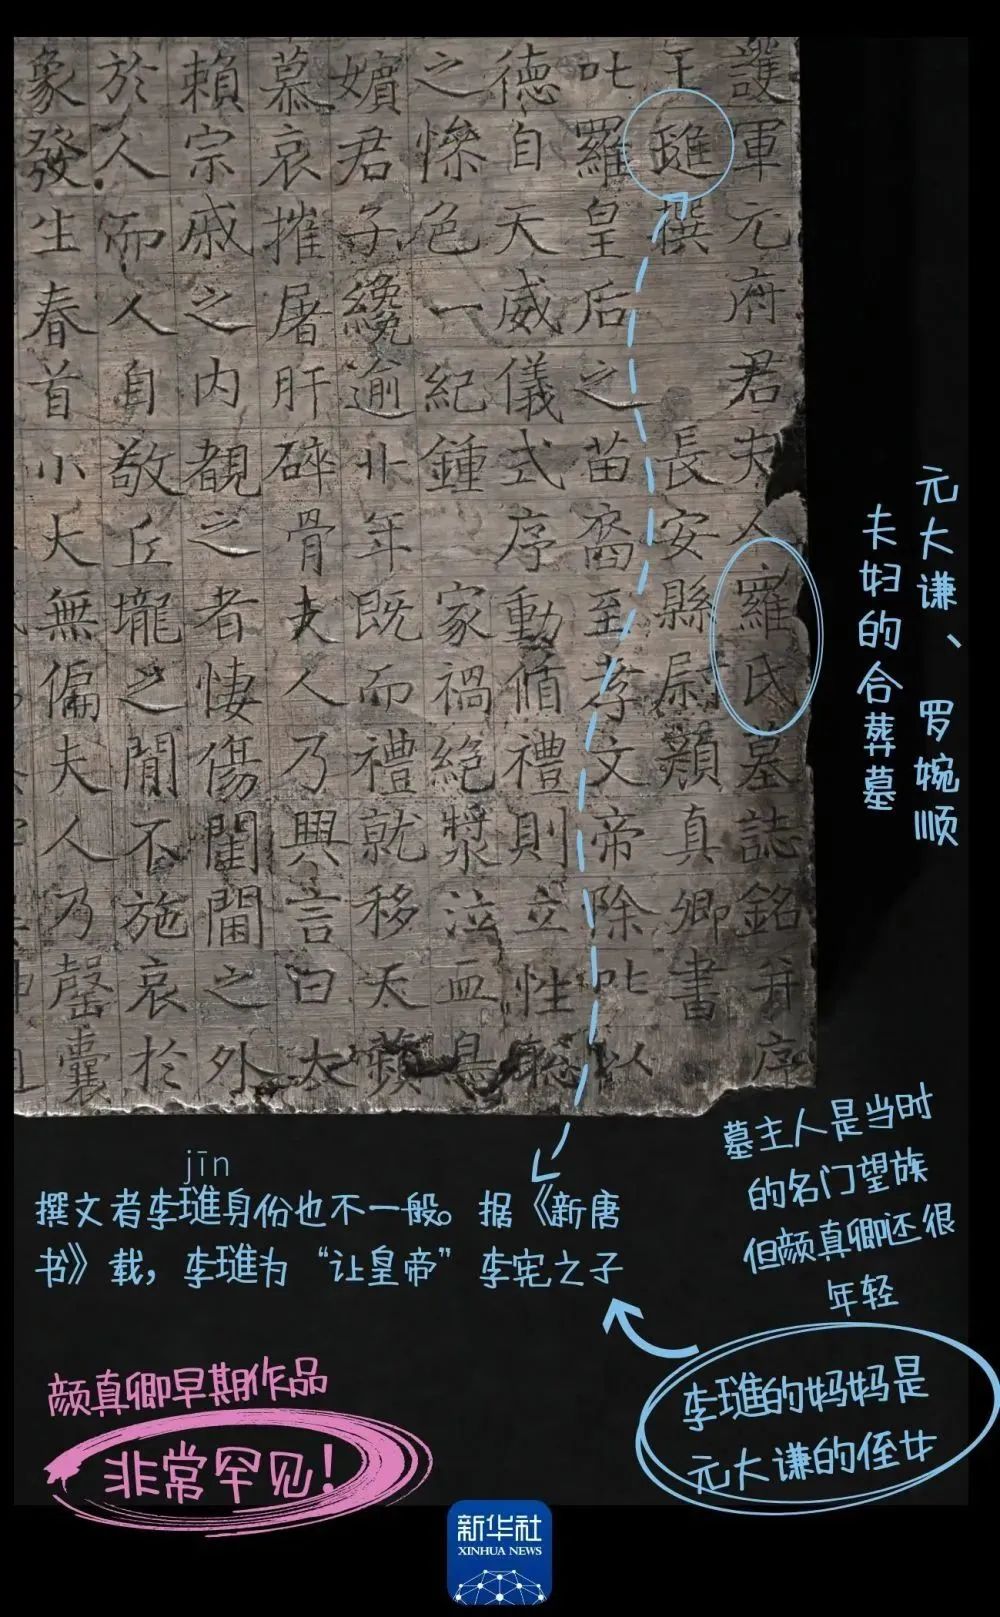 護軍元府君夫人羅氏墓誌銘并序
王璡撰 長安縣尉顏真卿書
叱羅皇后之苗裔至孝文帝除叱以
德自天威儀式序動循禮則立性聡
之慘色一紀鍾 家禍絕漿泣血鳥
嬪君子纔逾卝年既而禮就移天蘋
慕哀摧屠肝碎骨夫人乃興言曰大
賴宗戚之内覩之者悽傷閨閫之外
於人而人自敬丘壠之閒不施哀於
象發生春首小大無偏夫人乃罄囊
元大谦、罗婉顺
夫妇的合葬墓
墓主人是当时
的名门望族
但颜真卿还很
年轻
jīn
撰文者李琎身份也不一般。据《新唐
书》载，李琎为“让皇帝”李宪之子
李琎的妈妈是
元大谦的侄女
颜真卿早期作品
非常罕见！
新华社
XINHUA NEWS